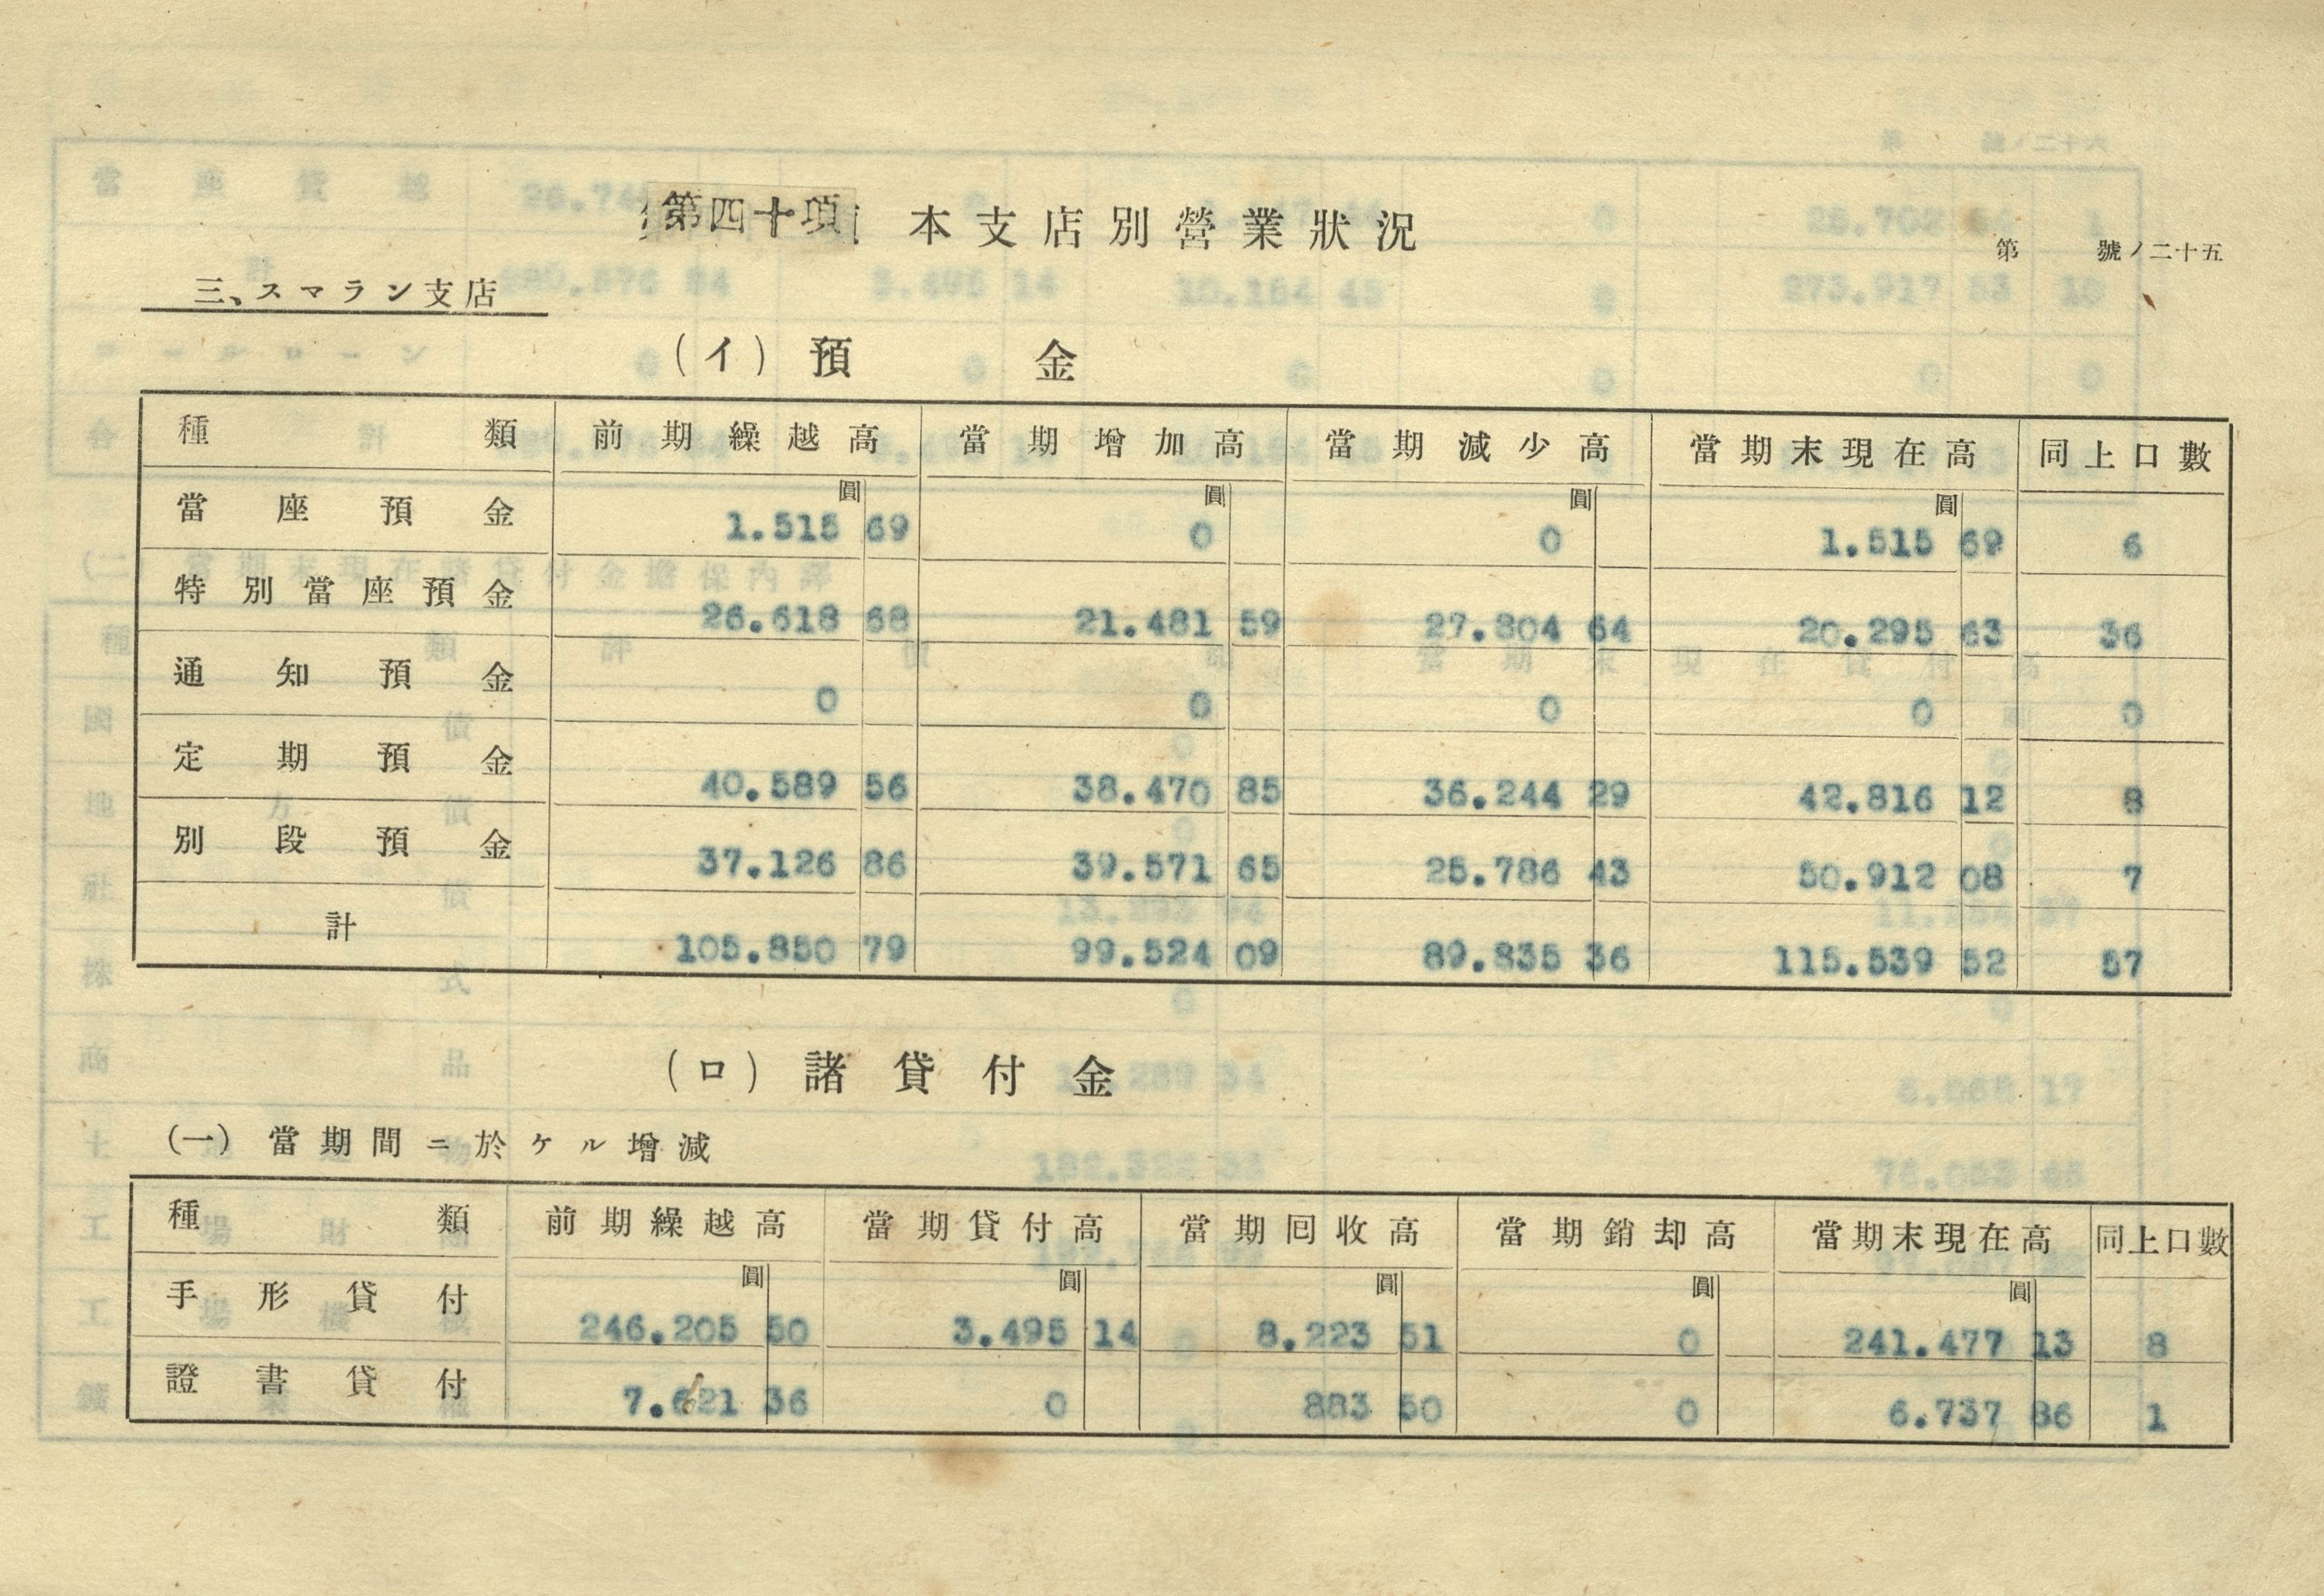 第四十項 本支店別營業狀況
第 號ノ二十五
三、スマラン支店
(イ) 預 金
種類 前期繰越高 當期增加高 當期減少高 當期末現在高 同上口數
圓 圓 圓 圓
當座預金 1.515 69 0 0 1.515 69 6
特別當座預金 26.618 68 21.481 59 27.804 64 20.295 63 36
通知預金 0 0 0 0 0
定期預金 40.589 56 38.470 85 36.244 29 42.816 12 8
別段預金 37.126 86 39.571 65 25.786 43 50.912 08 7
計 105.850 79 99.524 09 89.835 36 115.539 52 57
(ロ) 諸貸付金
(一) 當期間ニ於ケル增減
種類 前期繰越高 當期貸付高 當期囘收高 當期銷却高 當期末現在高 同上口數
圓 圓 圓 圓 圓
手形貸付 246.205 50 3.495 14 8.223 51 0 241.477 13 8
證書貸付 7.621 36 0 883 50 0 6.737 86 1